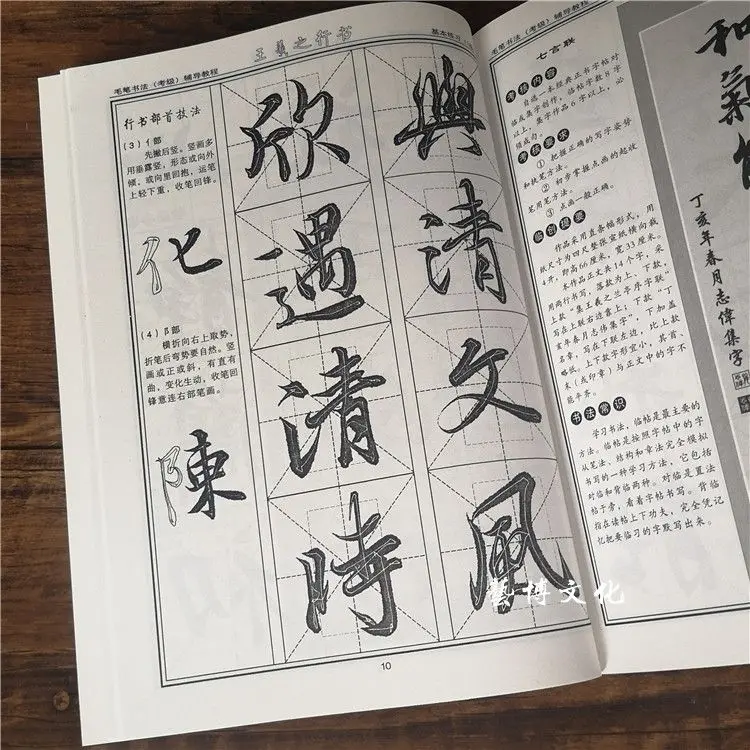 毛笔书法(考级)辅导教程
王羲之行书
基本练习
行书部首技法
(3)亻部
先撇后竖。竖画多
用垂露竖,形态或向外
倾,或向里回抱,运笔
上轻下重,收笔回锋。
化
(4)阝部
横折向右上取势,
折笔后弯势要自然。竖
画或正或斜,有直有
曲,变化生动,收笔回
锋意连右部笔画。
陳
興清文風
欣遇清時
10
毛笔书法(考级)辅导教程
七言联
考核内容
自选一本经典正书字帖对
临或集字创作,临帖字数8字
以上,集字作品6字以上,必
须成句。
考核要求
①把握正确的写字姿势
和执笔方法。
②初步掌握点画的起收
笔用笔方法。
③点画一般正确。
临创提要
作品采用直条幅形式,用
纸尺寸为四尺整张宣纸横向裁
4开,即高66厘米,宽33厘米。
本作品正文共14个字,采
用两行书写,落款为上、下款,
上款“集王羲之兰亭序字联”
写在上联右边靠上;下款“丁
亥年春月志伟集字”,下加盖
名章,写在下联左边,比上款
略低。上下款字形宜小,其首、
末(或印章)与正文中的字不
能平齐。
书法常识
学习书法,临帖是最主要的
方法。临帖是按照字帖中的字
从笔法、结构和章法完全模拟
书写的一种学习方法,它包括
对临和背临两种。对临是置法
帖于旁,看着字帖书写。背临
指在读帖上下功夫,完全凭记
忆把要临习的字默写出来。
丁亥年春月志偉集字
藝博文化